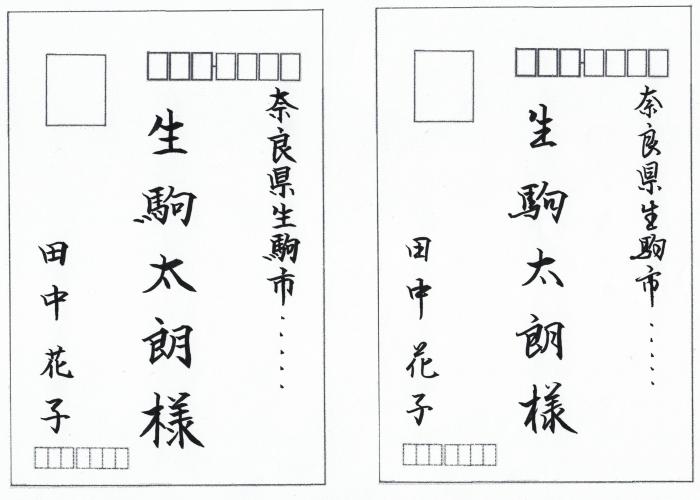 奈良県生駒市・・・・・
生駒太朗様
田中花子
奈良県生駒市・・・・・
生駒太朗様
田中花子